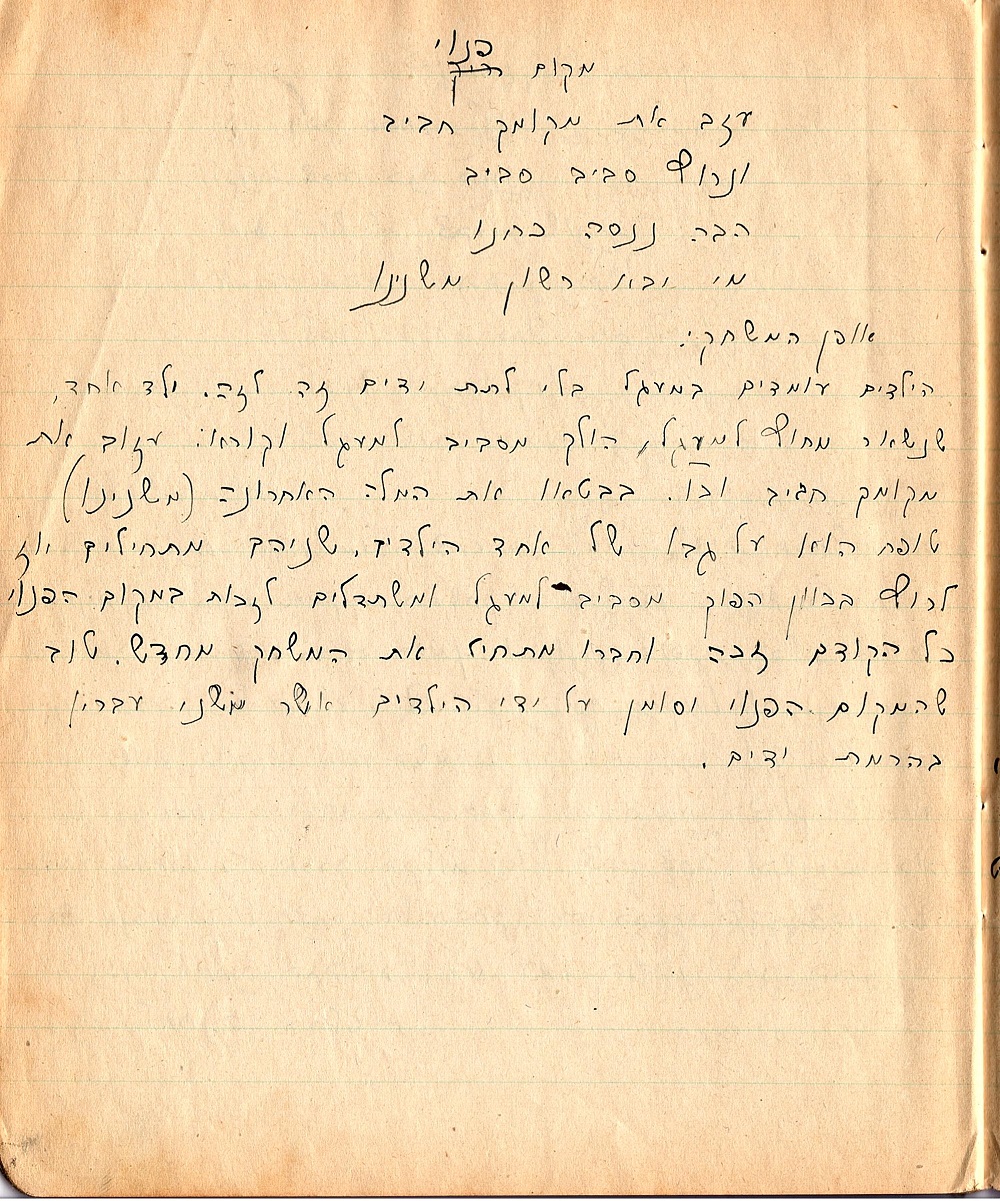 פנוי
מקום ריק
עזב את מקומך חביב
ונרוץ סביב סביב
הבה ננסה כחנו
מי יבא ראשון משנינו
אופן המשחק:
הילדים עומדים במעגל בלי לתת ידים זה לזה. ילד אחד,
שנשאר מחוץ למעגל, הולך מסביב למעגל וקורא: עזוב את
מקומך חביב וכו. בבטאו את המלה האחרונה (משנינו)
טופח הוא על גבו של אחד הילדים, שניהם מתחילים אז
לרוץ בכוון הפוך מסביב למעגל ומשתדלים לזכות במקום הפנוי
כל הקודם זכה וחברו מתחיל את המשחק מחדש. טוב
שהמקום הפנוי יסומן על ידי הילדים אשר משני עבריו
בהרמת ידים.